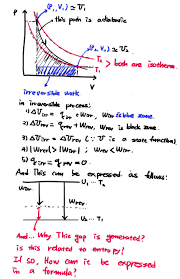 P
(P₁, V₁) ≃ U₁
this path is adiabatic
(P₂, V₂) ≃ U₂
T₂
T₁
> both are isotherm.
V
irreversible work
in irreversible process:
1) ΔUirr = qirr + Wirr, Wirr is blue zone.
2) ΔUrev = qrev + Wrev, Wrev is black zone.
3) ΔUirr = ΔUrev (∵ U is a state function)
4) |Wrev| > |Wirr| ; Wrev < Wirr.
5) qirr = qrev = 0.
And This can be expressed as follows:
U₁ ... T₂
Wirr
Wrev
U₂ ... T₁
And... Why This gap is generated?
is this related to entropy?
If so, How can it be expressed
in a formula?